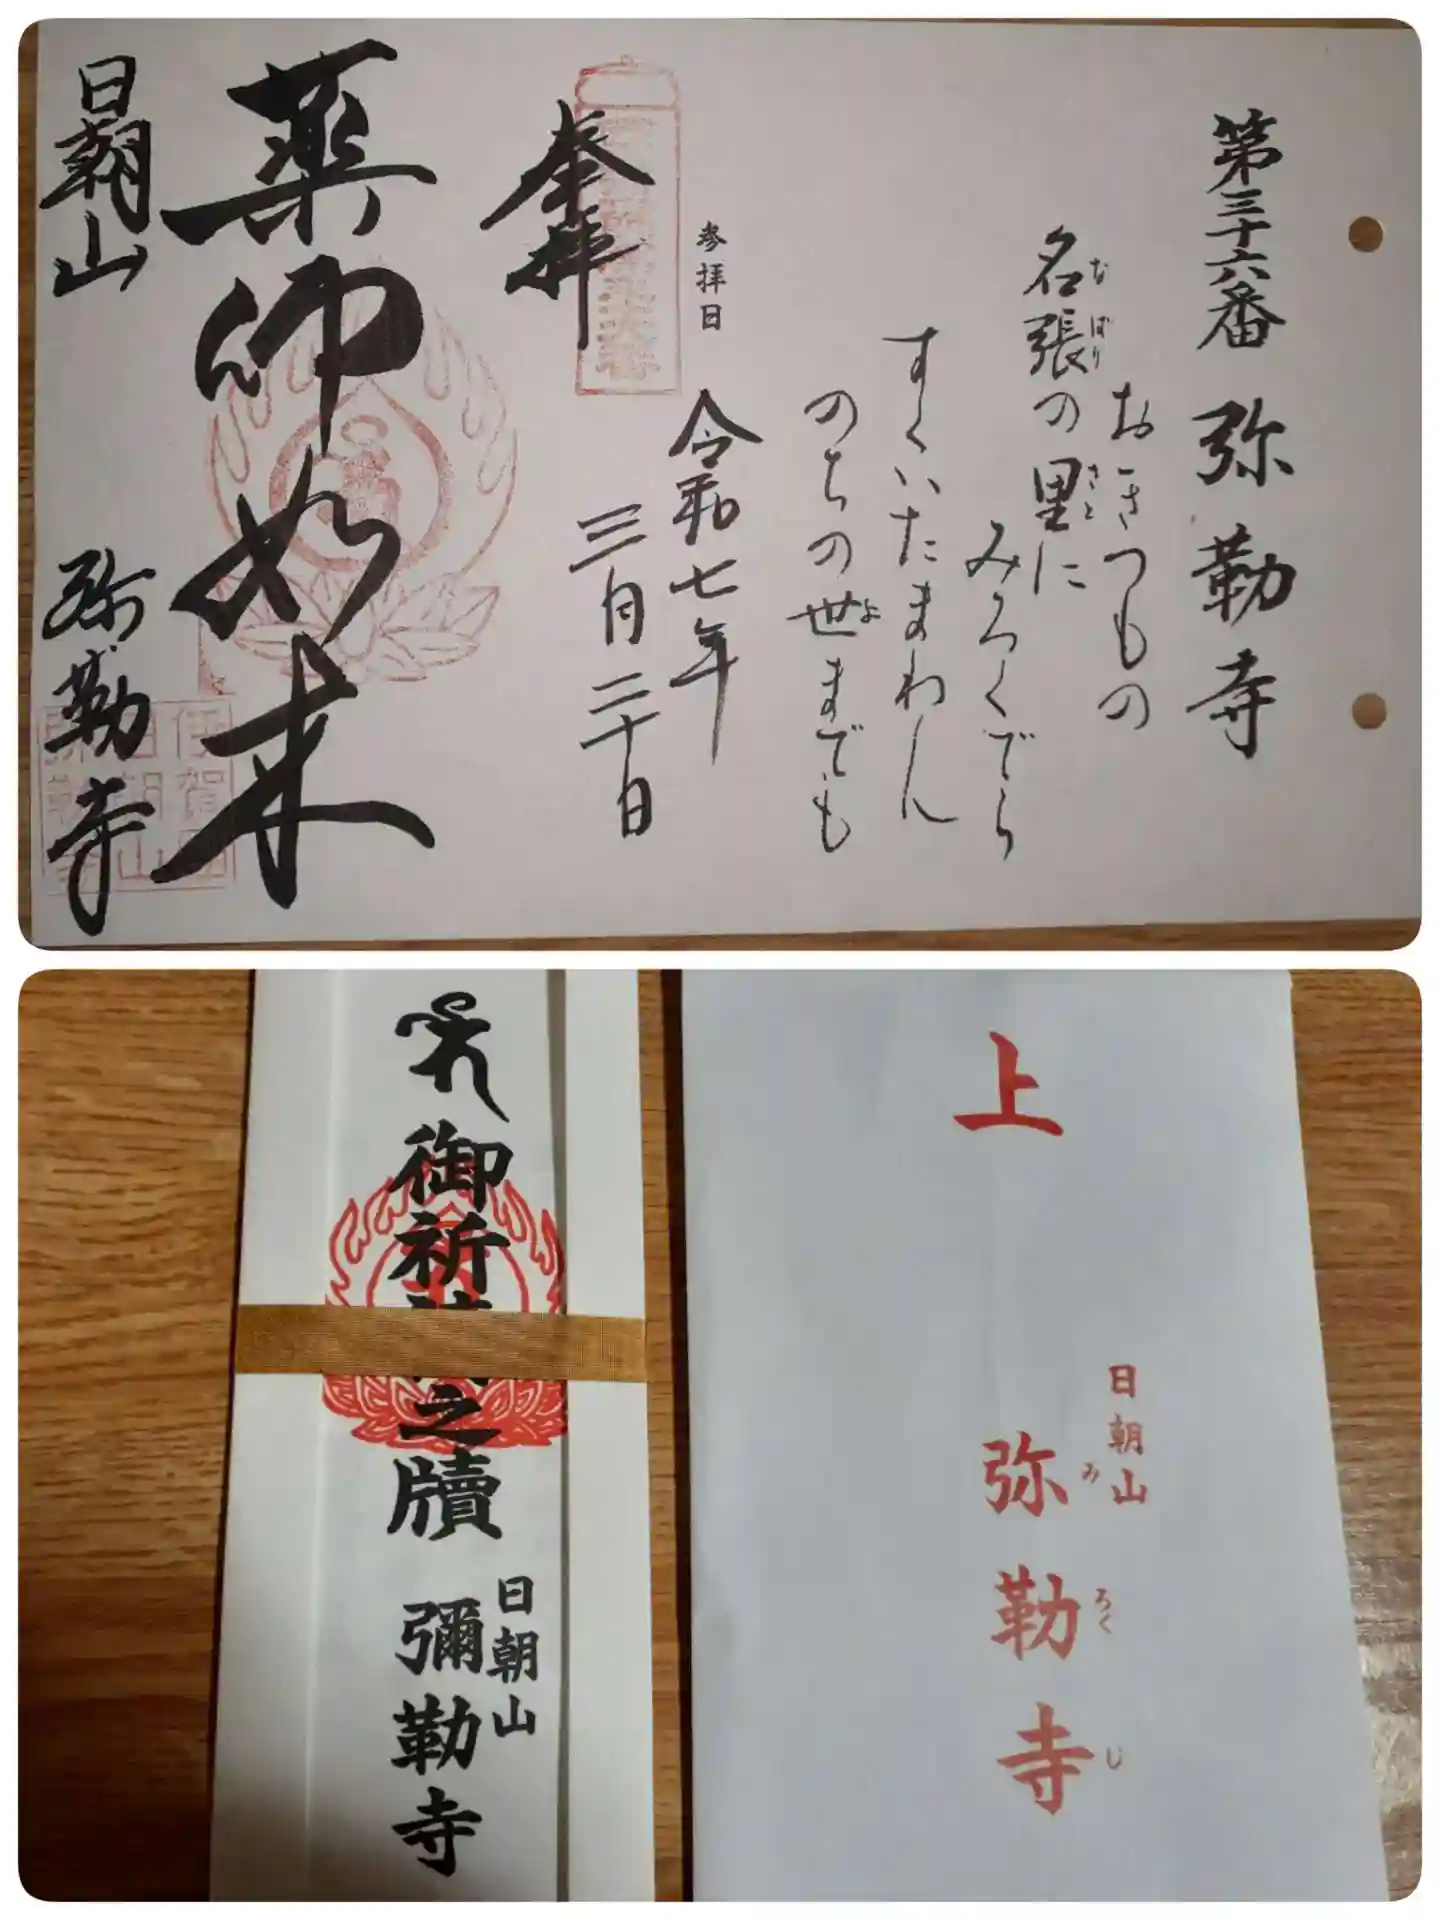 第三十六番 弥勒寺
おきつもの
名張の里に
なばり
さと
みろくでら
すくいたまわん
のちの世までも
よ
参拝日
令和七年
三月二十日
奉拝
薬师如来
日朝山 弥勒寺
伊賀国
日朝山
弥勒寺
御祈
之牘
日朝山
彌勒寺
上
日朝山
弥勒寺
みろくじ